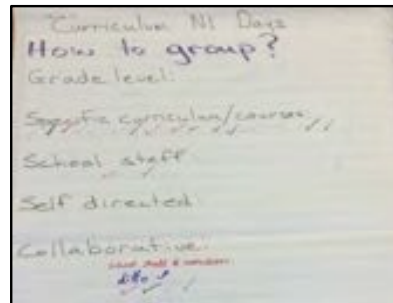 Curriculum NI Days
How to group?
Grade level:
Specific curriculum/courses
School staff
Self directed
Collaborative
ditto